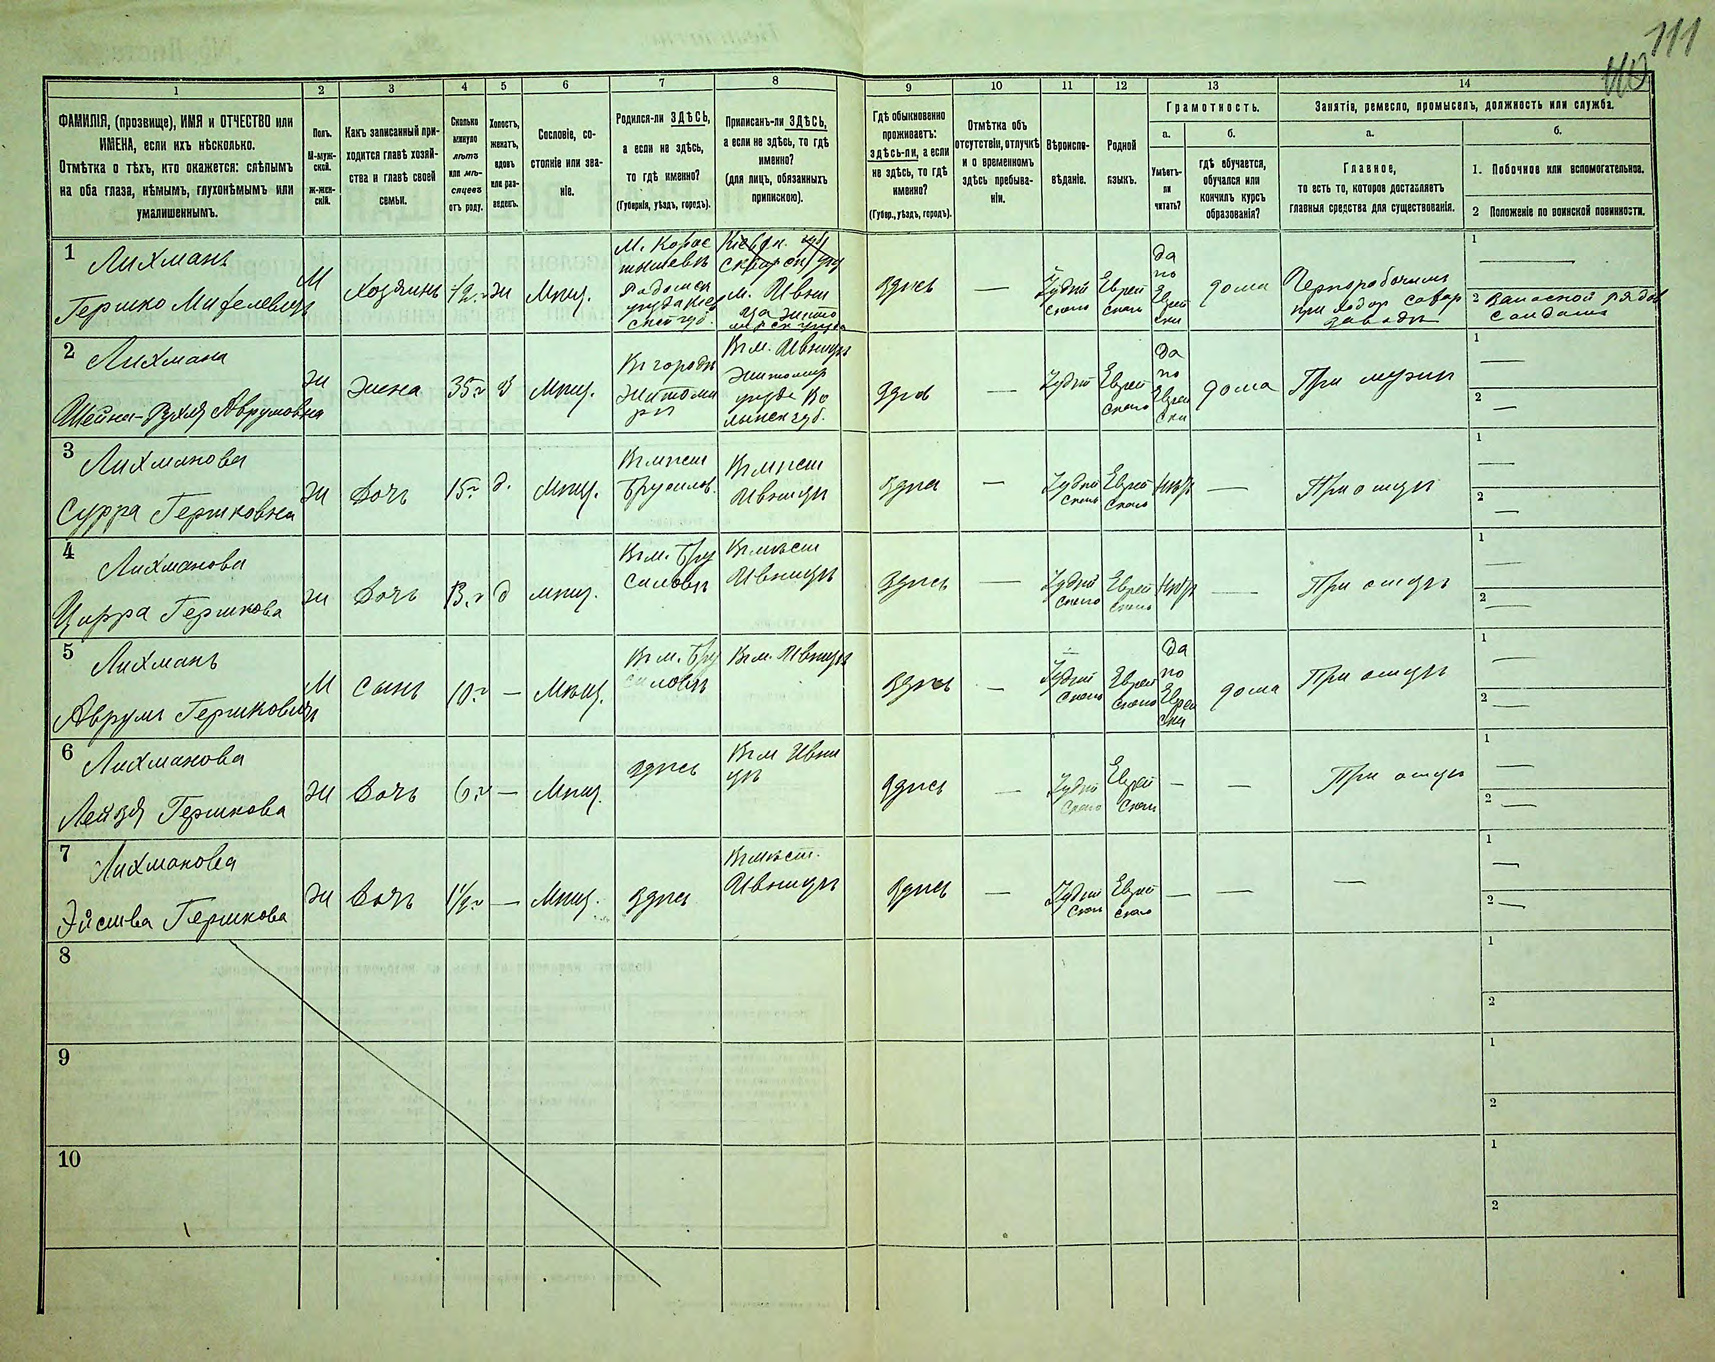 111
110
1
2
3
4
5
6
7
8
9
10
11
12
13
14
ФАМИЛІЯ, (прозвище), ИМЯ и ОТЧЕСТВО или
ИМЕНА, если ихъ нѣсколько.
Отмѣтка о тѣхъ, кто окажется: слѣпымъ
на оба глаза, нѣмымъ, глухонѣмымъ или
умалишеннымъ.
Полъ.
М-муж-
ской.
ж-жен-
скій.
Какъ записанный при-
ходится главѣ хозяй-
ства и главѣ своей
семьи.
Сколько
минуло
лѣтъ
или мѣ-
сяцевъ
отъ роду.
Холостъ,
женатъ,
вдовъ
или раз-
веденъ.
Сословіе, со-
стояніе или зва-
ніе.
Родился-ли ЗДѢСЬ,
а если не здѣсь,
то гдѣ именно?
(Губернія, уѣздъ, городъ).
Приписанъ-ли ЗДѢСЬ,
а если не здѣсь, то гдѣ
именно?
(для лицъ, обязанныхъ
припискою).
Гдѣ обыкновенно
проживаетъ:
здѣсь-ли, а если
не здѣсь, то гдѣ
именно?
(Губер., уѣздъ, городъ).
Отмѣтка объ
отсутствіи, отлучкѣ
и о временномъ
здѣсь пребыва-
ніи.
Вѣроиспо-
вѣданіе.
Родной
языкъ.
Грамотность.
а.
б.
Умѣетъ-
ли
читать?
гдѣ обучается,
обучался или
кончилъ курсъ
образованія?
Занятія, ремесло, промыселъ, должность или служба.
а.
б.
Главное,
то есть то, которое доставляетъ
главныя средства для существованія.
1. Побочное или вспомогательное.
2 Положеніе по воинской повинности.
1
Лихманъ
Гершко
М
Хозяинъ
42.г
ж
Мѣщ.
здѣсь
—
Іудей
ского
Еврей
ского
да
по
Еврей
ски
дома
Чернорабочимъ
1
—
2 Запасной рядов
солдатъ
2
Лихмана
Шейна-Рухля Аврумовна
ж
жена
35г
з
Мѣщ.
Въ городѣ
Житоми
рѣ
Въ м. Ивницѣ
Житомир
уѣзда Во
лынск губ.
—
Іудей
Еврей
ского
да
по
Еврей
ски
дома
При мужѣ
1
—
2
—
3
Лихманова
Сурра Гершковна
ж
Дочь
15г
д.
Мѣщ.
Въ мѣст
Брусилов.
Въ мѣст
Ивницѣ
—
Іудей
Еврей
ского
—
При отцѣ
1
—
2
—
4
Лихманова
Цирра Гершкова
ж
Дочь
13.г
д
мѣщ.
Въ м. Бру
силовѣ
Въ мѣст
Ивницѣ
здѣсь
—
Іудей
ского
Еврей
ского
—
При отцѣ
1
—
2
—
5
Лихманъ
Аврумъ Гершковичъ
М
Сынъ
10.г
—
Мѣщ.
Въ м. Бру
силовѣ
Въ м. Ивницѣ
здѣсь
—
Іудей
ского
Еврей
ского
да
по
Еврей
ски
дома
При отцѣ
1
—
2
—
6
Лихманова
Гершкова
ж
Дочь
6.г
—
Мѣщ.
здѣсь
Въ м Ивни
цѣ
здѣсь
—
Іудей
ского
Еврей
ского
—
—
При отцѣ
1
—
2
—
7
Лихманова
Гершкова
ж
Дочь
—
Мѣщ.
здѣсь
Въ мѣст.
Ивницѣ
здѣсь
—
Іудей
Еврей
ского
—
—
—
1
—
2
—
8
1
2
9
1
2
10
1
2